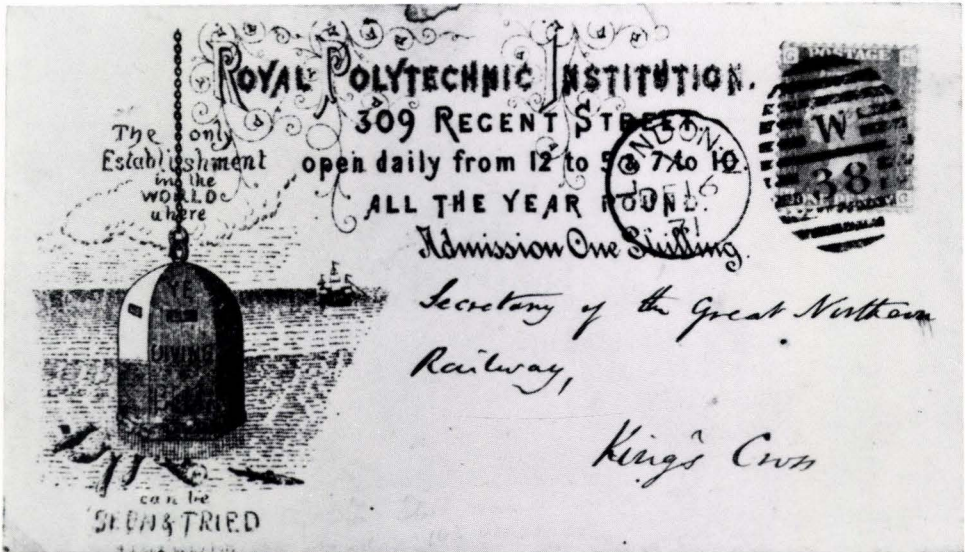 ROYAL POLYTECHNIC INSTITUTION.
309 REGENT STREET.
open daily from 12 to 5 & 7 to 10
ALL THE YEAR ROUND.
Admission One Shilling.
The only
Establishment
in the
WORLD
where
YE
DIVING
can be
SEEN & TRIED
LONDON
DE 16
71
POSTAGE
W
38
Secretary of the Great Northern
Railway,
King's Cross